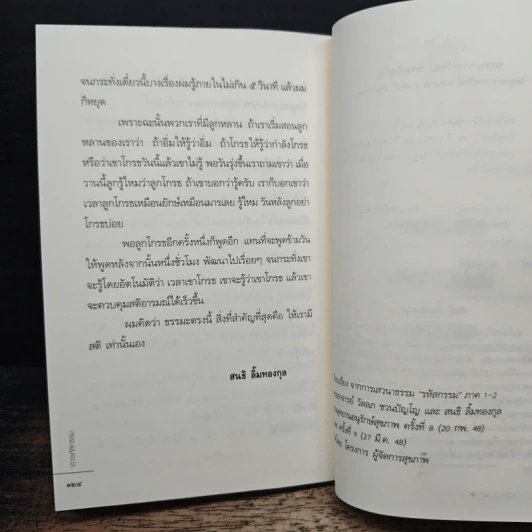 จนกระทั่งเดี๋ยวนี้บางเรื่องผมรู้ภายในไม่เกิน ๕ วินาที แล้วผม
ก็หยุด
เพราะฉะนั้นพวกเราที่มีลูกหลาน ถ้าเราเริ่มสอนลูก
หลานของเราว่า ถ้าอิ่มให้รู้ว่าอิ่ม ถ้าโกรธให้รู้ว่ากำลังโกรธ
หรือว่าเขาโกรธวันนี้แล้วเขาไม่รู้ พอวันรุ่งขึ้นเราถามเขาว่า เมื่อ
วานนี้ลูกรู้ไหมว่าลูกโกรธ ถ้าเขาบอกว่ารู้ครับ เราก็บอกเขาว่า
เวลาลูกโกรธเหมือนยักษ์เหมือนมารเลย รู้ไหม วันหลังลูกอย่า
โกรธบ่อย
พอลูกโกรธอีกครั้งหนึ่งก็พูดอีก แทนที่จะพูดข้ามวัน
ให้พูดหลังจากนั้นหนึ่งชั่วโมง พัฒนาไปเรื่อยๆ จนกระทั่งเขา
จะรู้โดยอัตโนมัติว่า เวลาเขาโกรธ เขาจะรู้ว่าเขาโกรธ แล้วเขา
จะควบคุมสติอารมณ์ได้เร็วขึ้น
ผมคิดว่า ธรรมะตรงนี้ สิ่งที่สำคัญที่สุดคือ ให้เรามี
สติ เท่านั้นเอง
สนธิ ลิ้มทองกุล
๑๒๔
เรียบเรียง จากการเสวนาธรรม "รหัสกรรม" ภาค 1-2
พระอาจารย์ วัลลภ ชวนปัญโญ และ สนธิ ลิ้มทองกุล
อนุรักษ์สุขภาพ ครั้งที่ 8 (20 กพ. 48)
ครั้งที่ 9 (27 มี.ค. 48)
โดย โครงการ ผู้จัดการสุขภาพ